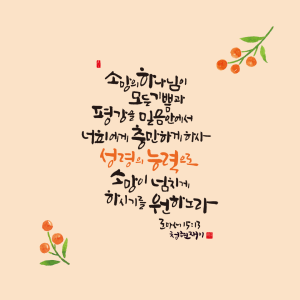 소망의 하나님이
모든 기쁨과
평강을 믿음 안에서
너희에게 충만하게 하사
성령의 능력으로
소망이 넘치게
하시기를 원하노라
로마서 15:13